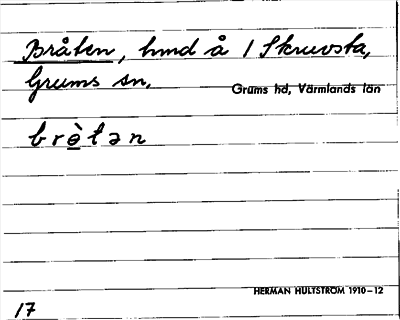 Bråten, hmd å 1 Skruvsta,
Grums sn.
Grums hd, Värmlands län
brɵ̀tən
HERMAN HULTSTRÖM 1910–12
17